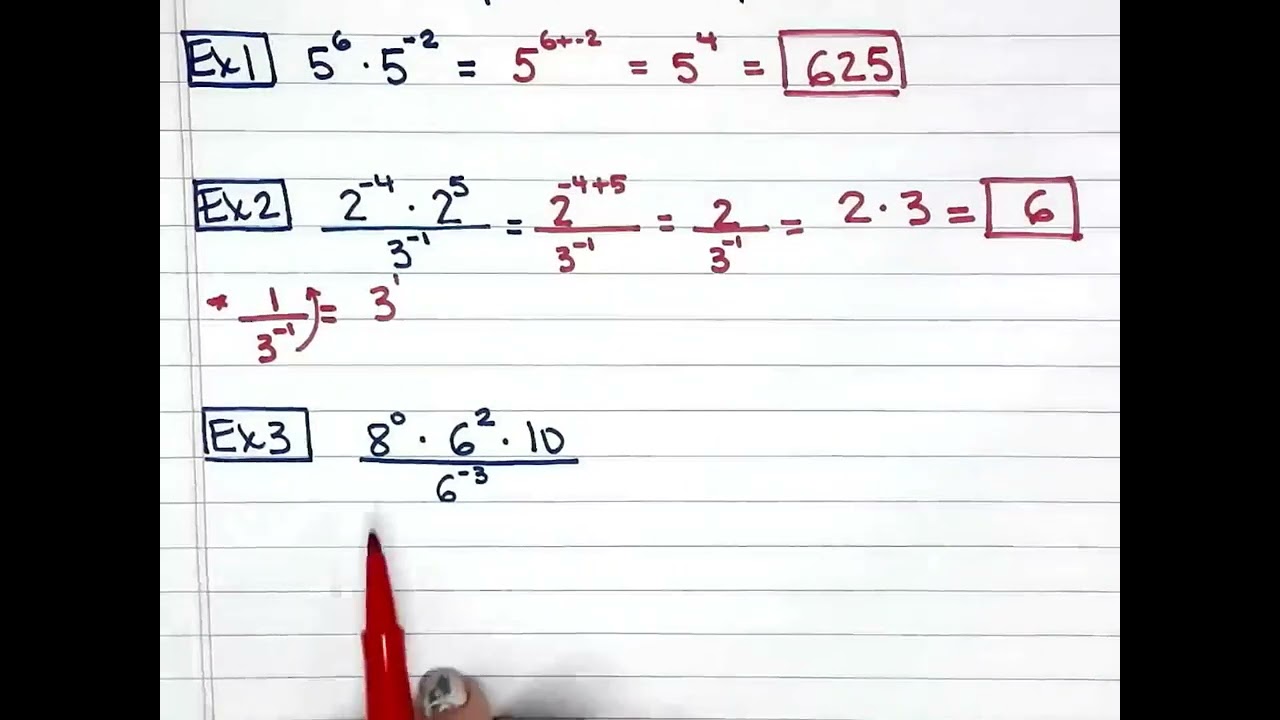 Ex1 5⁶ · 5⁻² = 5⁶⁺⁻² = 5⁴ = 625
Ex2 2⁻⁴ · 2⁵ / 3⁻¹ = 2⁻⁴⁺⁵ / 3⁻¹ = 2 / 3⁻¹ = 2 · 3 = 6
* 1 / 3⁻¹ = 3¹
Ex3 8⁰ · 6² · 10 / 6⁻³